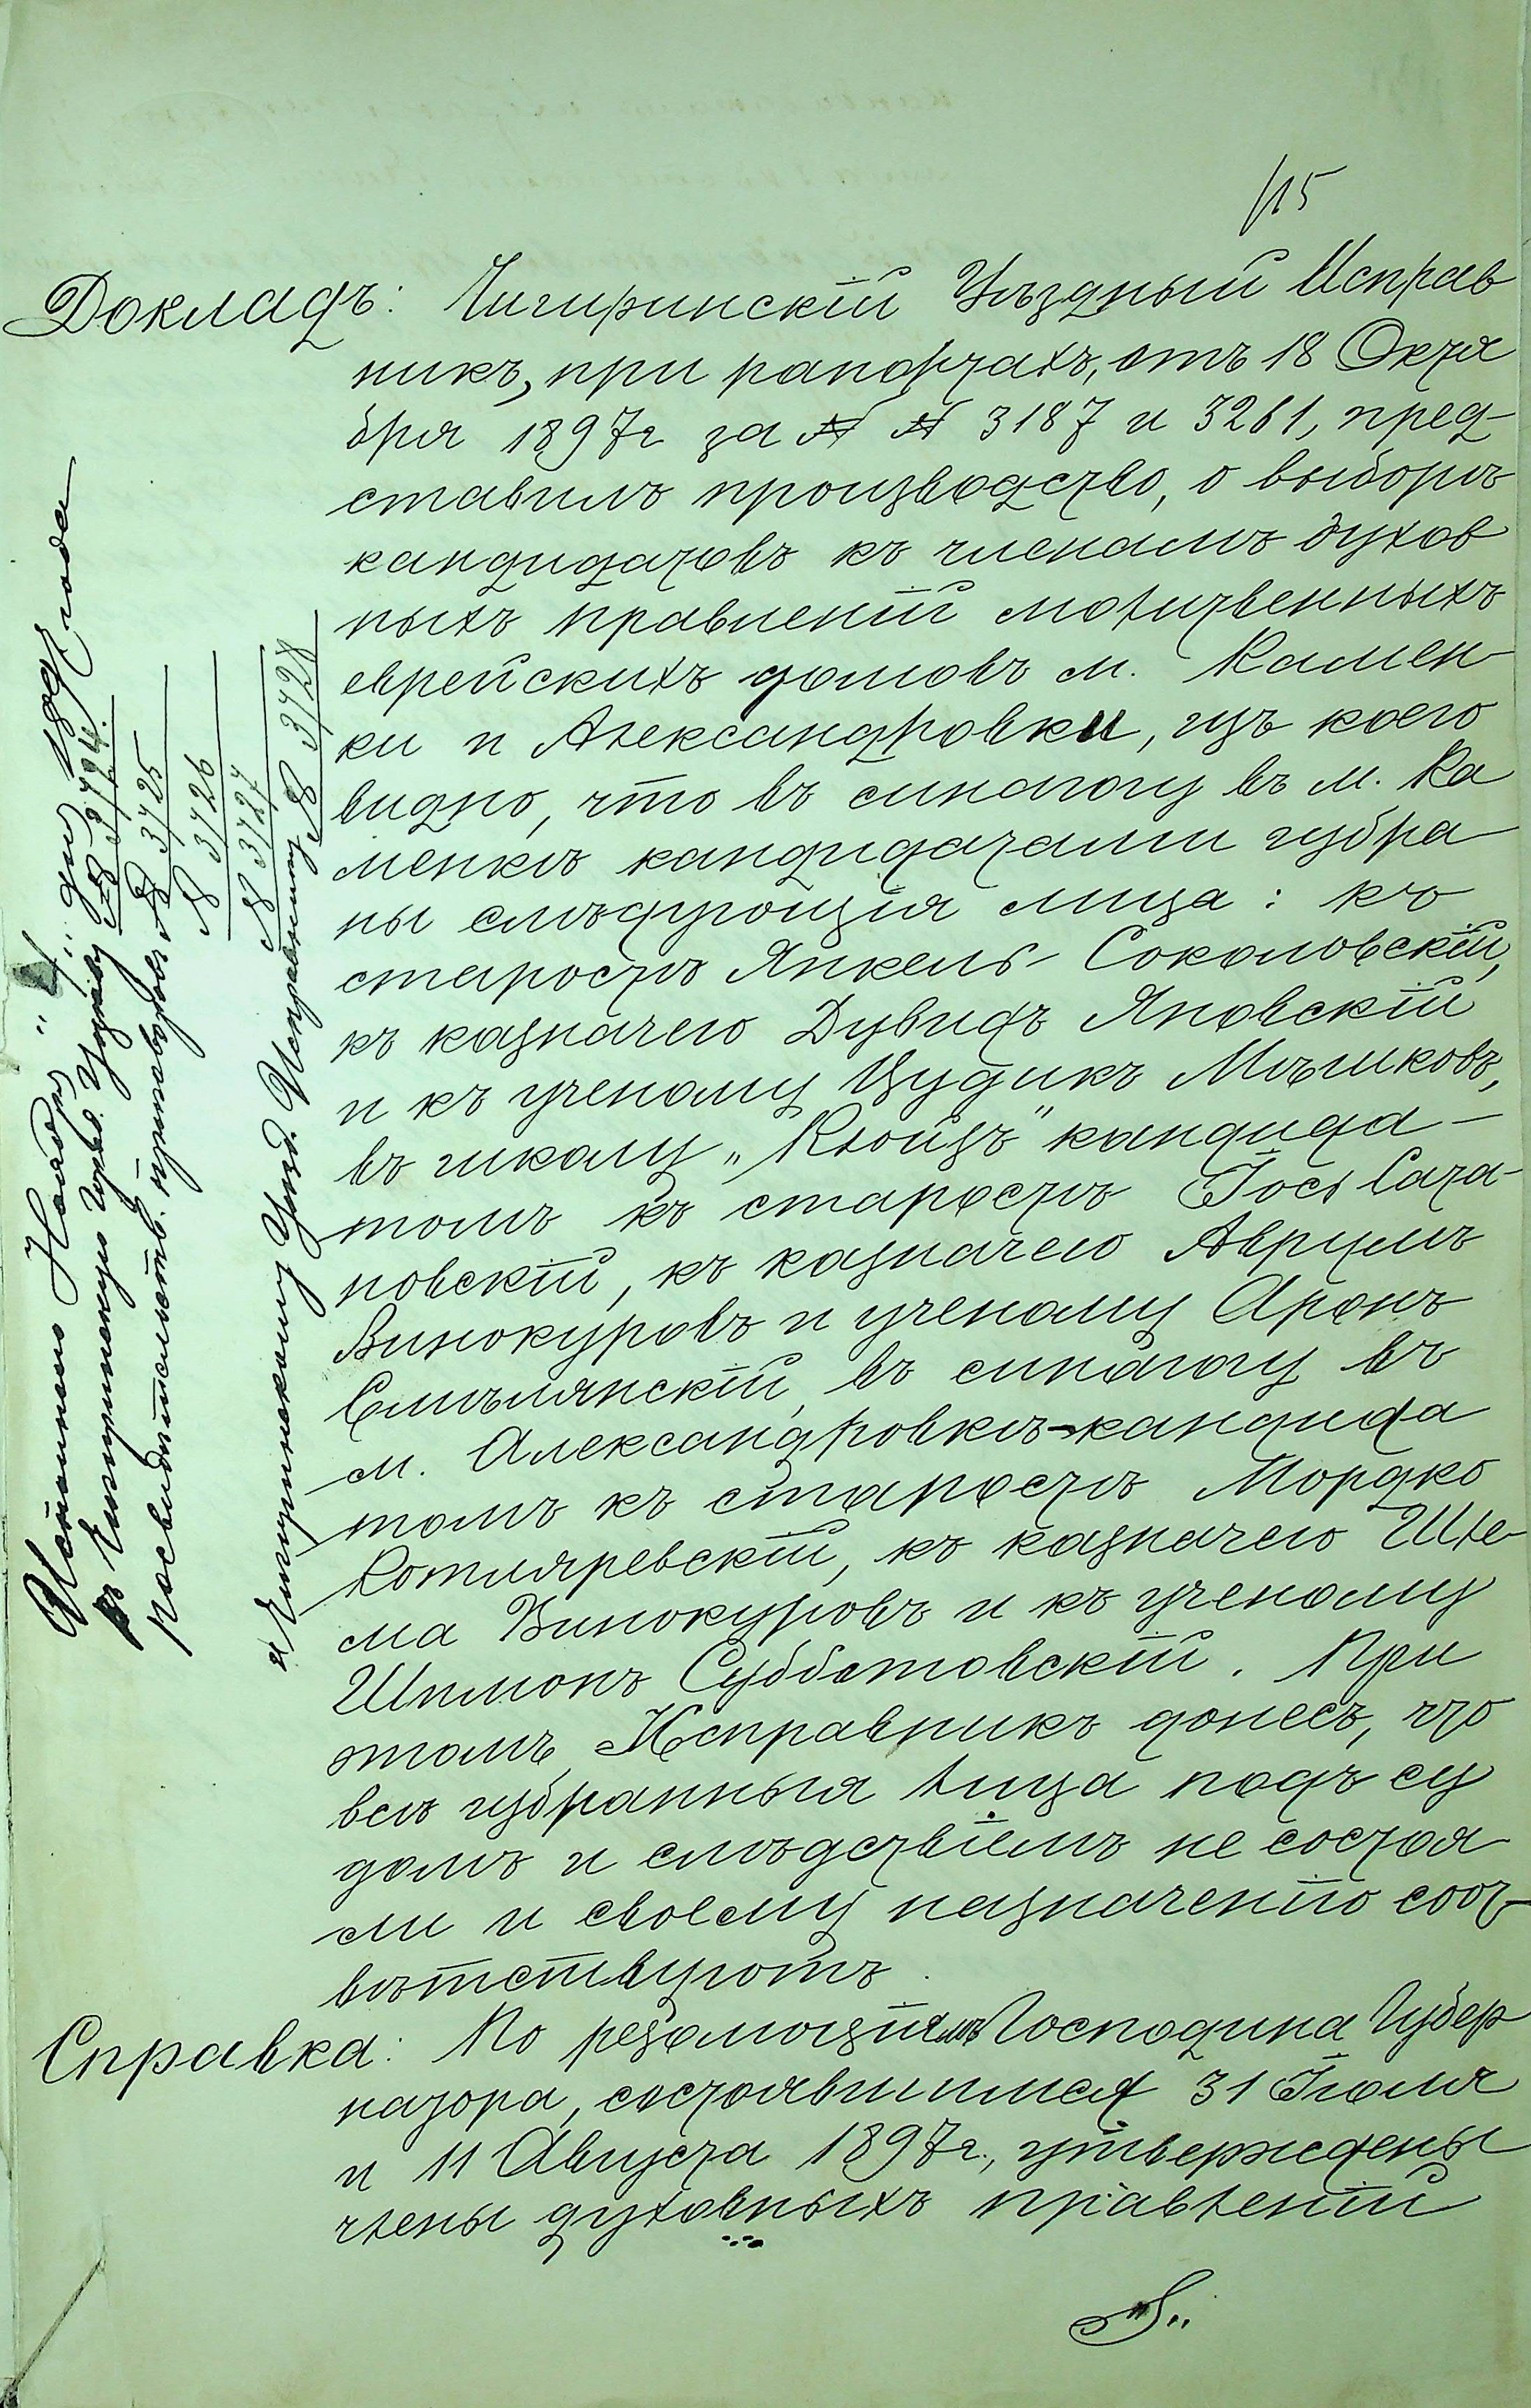 115
Докладъ: Чигиринскій Уѣздный Исправ
никъ, при рапортахъ, отъ 18 Октя
бря 1897 г за № № 3187 и 3261, пред-
ставилъ производство, о выборѣ
кандидатовъ къ членамъ духов
ныхъ правленій молитвенныхъ
еврейскихъ домовъ м. Камен-
ки и Александровки, изъ коего
видно, что въ синагогу въ м. Ка
менкѣ кандидатами избра
ны слѣдующія лица: къ
старостѣ Янкель Соколовскій,
къ казначею Дувидъ Яновскій
и къ ученому Цудикъ Мѣшковъ,
въ школу „Клойзъ“ кандида-
томъ къ старостѣ Іось Сата-
новскій, къ казначею Аврумъ
Винокуровъ и ученому Аронъ
Смѣлянскій, въ синагогу въ
м. Александровкѣ-кандида
томъ къ старостѣ Мордко
Котляревскій, къ казначею Шле-
ма Винокуровъ и къ ученому
Шимонъ Субботовскій. При
этомъ, Исправникъ донесъ, что
всѣ избранныя лица подъ су
домъ и слѣдствіемъ не состоя
ли и своему назначенію соот-
вѣтствуютъ.
Справка: По резолюціямъ Господина Губер
натора, состоявшимся 31 Іюля
и 11 Августа 1897 г., утверждены
члены духовныхъ правленій
Исполнено Ноября „4“ дня 1897 года
въ Чигиринскую Город. Управу № 3724.
№ 3725
№ 3726
№ 3727
и Чигиринскому Уѣзд. Исправнику № 3728